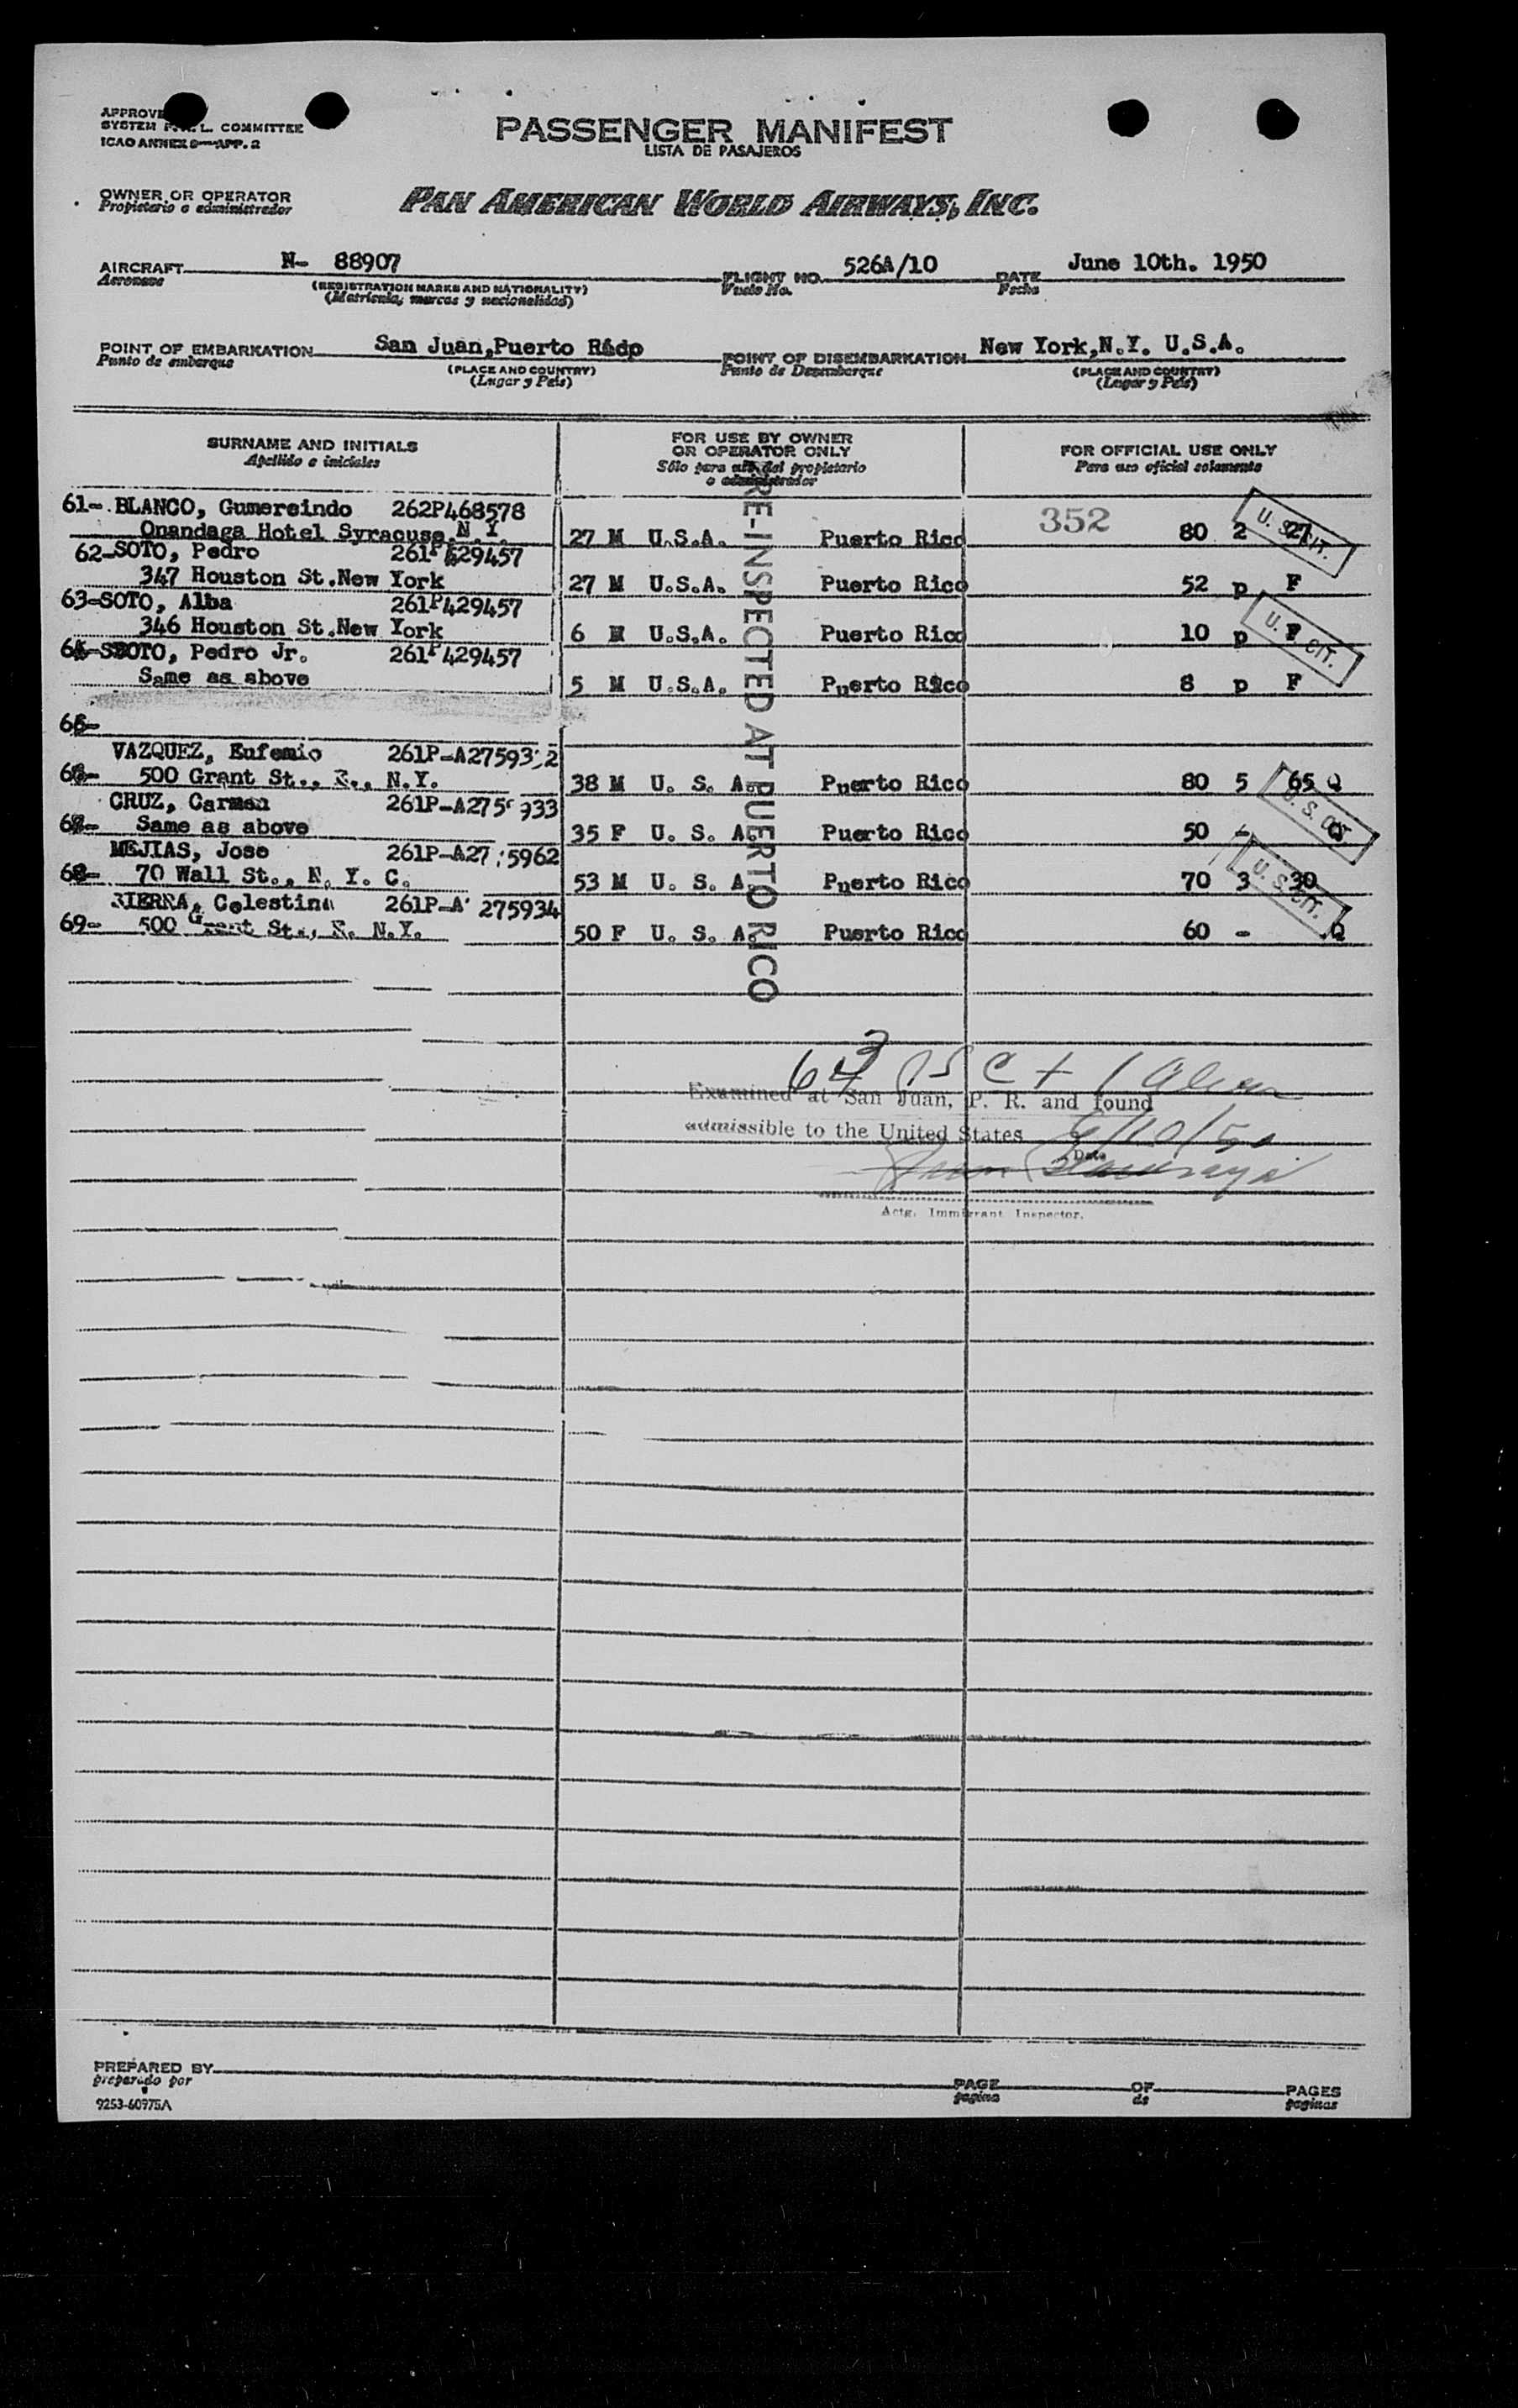 SYSTEM COMMITTEE
ICAO ANNEX 9—APP. 2
PASSENGER MANIFEST
LISTA DE PASAJEROS
OWNER OR OPERATOR
Propietario o administrador
PAN AMERICAN WORLD AIRWAYS, INC.
AIRCRAFT N- 88907 FLIGHT NO. 526A/10 DATE June 10th. 1950
Aeronave (REGISTRATION MARKS AND NATIONALITY) Vuelo No. Fecha
(Matricula, marcas y nacionalidad)
POINT OF EMBARKATION San Juan,Puerto POINT OF DISEMBARKATION New York,N.Y. U.S.A.
Punto de embarque (PLACE AND COUNTRY) Punto de Desembarque (PLACE AND COUNTRY)
(Lugar y Pais) (Lugar y Pais)
SURNAME AND INITIALS FOR USE BY OWNER OR OPERATOR ONLY FOR OFFICIAL USE ONLY
Apellido e iniciales Sólo para uso del propietario o administrador Para uso oficial solamente
61-. BLANCO, Gumersindo 262P468578 352
Onandaga Hotel Syracuse,N.Y. 27 M U.S.A. Puerto Rico 80 2 27
U. S. CIT.
62-SOTO, Pedro 261P429457
347 Houston St.New York 27 M U.S.A. Puerto Rico 52 p F
63-SOTO, Alba 261P429457
346 Houston St.New York 6 U.S.A. Puerto Rico 10 p F
U. S. CIT.
SOTO, Pedro Jr. 261P429457
Same as above 5 M U.S.A. Puerto Rico 8 p F
VAZQUEZ, Eufemio
500 Grant St., N.Y. 38 M U. S. A. Puerto Rico 80 5 65 Q
U. S. CIT.
CRUZ, Carmen
Same as above 35 F U. S. A. Puerto Rico 50 - Q
MEJIAS, Jose
70 Wall St., N. Y. C. 53 M U. S. A. Puerto Rico 70 3 30
U. S. CIT.
Celestina
69- 500 Grant St., N.Y. 50 F U. S. A. Puerto Rico 60 - Q
PRE-INSPECTED AT PUERTO RICO
Examined at San Juan, P. R. and found
admissible to the United States 6/10/50
Date
Actg. Immigrant Inspector.
PREPARED BY
preparado por
PAGE OF PAGES
pagina de paginas
9253-60975A